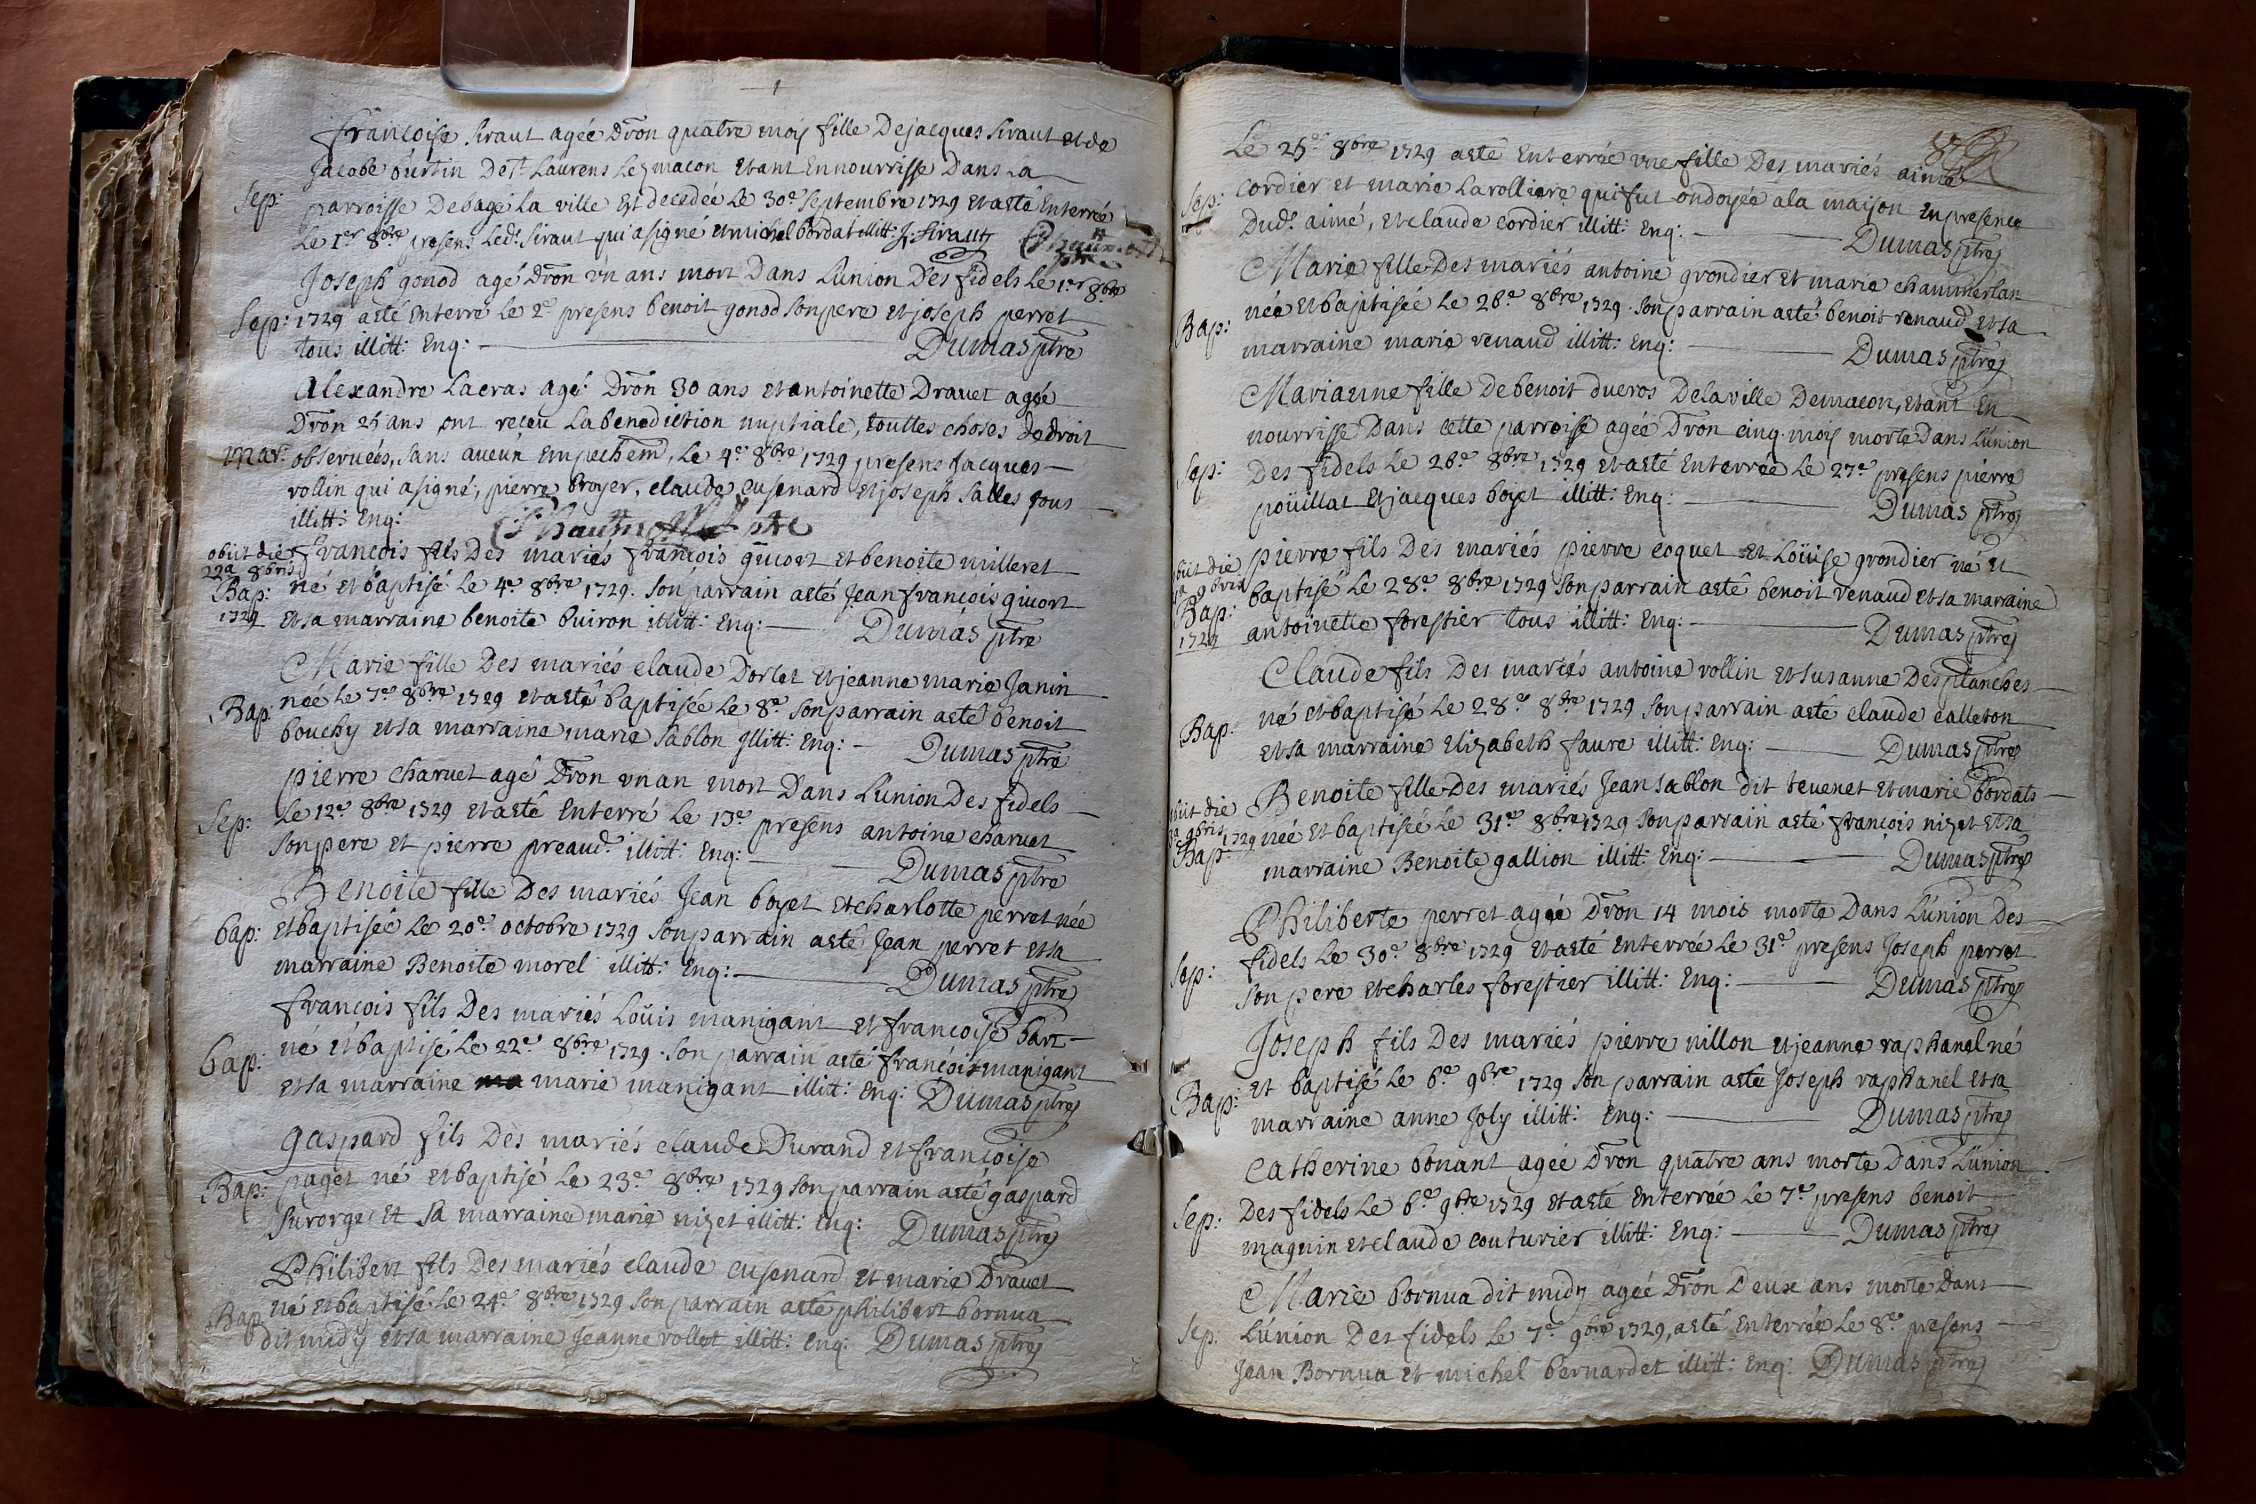 françoise siraut agée d'ron quatre mois fille de jacques siraut et de
jacobe burtin de st. Laurens les macon etant en nourrisse dans la
Sep: parroisse de bagé la ville est decedée le 30e septembre 1729 et a esté Enterrée
le 1er 8bre presens led. siraut qui a signé et michel bordat illitt: J: siraut
Joseph gonod agé d'ron un ans mort dans l'union des fidels le 1er 8bre
Sep: 1729 a esté Enterré le 2e presens benoit gonod son pere et joseph perret
tous illitt: Enq: Dumas ptre
alexandre lacras agé d'ron 30 ans et antoinette dravet agée
d'ron 25 ans ont reçeu la benediction nuptiale, touttes choses de droit
mar: observées, sans aucun empechem, le 4e 8bre 1729 presens jacques
vollin qui a signé, pierre broyer, claude cusenard et joseph salles tous
illitt: Enq:
obiit die françois fils des mariés françois guiort et benoite milleret
22a 8bris né et baptisé le 4e 8bre 1729. son parrain a esté jean françois guiort
Bap: 1729 et sa marraine benoite buiron illitt: Enq: Dumas ptre
Marie fille des mariés claude dorlet et jeanne marie janin
Bap née le 7e 8bre 1729 et a esté baptisée le 8e son parrain a esté benoit
bouchy et sa marraine marie sablon illitt: Enq: Dumas ptre
pierre charvet agé d'ron un an mort dans l'union des fidels
Sep: le 12e 8bre 1729 et a esté Enterré le 13e presens antoine charvet
son pere et pierre preaud illitt: Enq: Dumas ptre
Benoite fille des mariés jean boyet et charlotte perret née
bap: et baptisée le 20e octobre 1729 son parrain a esté jean perret et sa
marraine Benoite morel illitt: Enq: Dumas ptre
françois fils des mariés Loüis manigant et françoise bart
bap: né et baptisé le 22e 8bre 1729. son parrain a esté françois manigant
et sa marraine marie manigant illitt: Enq: Dumas ptre
gaspard fils des mariés claude Durand et françoise
Bap: paget né et baptisé le 23e 8bre 1729 son parrain a esté gaspard
surorge et sa marraine marie nizet illitt: Enq: Dumas ptre
Philibert fils des mariés claude cusenard et marie dravet
Bap né et baptisé le 24e 8bre 1729 son parrain a esté philibert bornua
dit midy et sa marraine jeanne vollet illitt: Enq: Dumas ptre
Le 25e 8bre 1729 a esté Enterrée une fille des mariés aimé
Sep: cordier et marie larolliere qui fut ondoyée a la maison En presence
dud. aimé, et claude cordier illitt: Enq: Dumas ptre
Marie fille des mariés antoine grondier et marie chammerlan
Bap: née et baptisée le 26e 8bre 1729. son parrain a esté benoit renaud et sa
marraine marie renaud illitt: Enq: Dumas ptre
Marianne fille de benoit ducros de la ville de macon, etant En
nourrisse dans cette parroisse agée d'ron cinq mois morte dans l'union
Sep: des fidels le 26e 8bre 1729 et a esté Enterrée le 27e presens pierre
poüillat et jacques boyet illitt: Enq: Dumas ptre
obiit die pierre fils des mariés pierre coquet et Loüise grondier né et
Bap: baptisé le 28e 8bre 1729 son parrain a esté benoit renaud et sa marraine
1729 antoinette forestier tous illitt: Enq: Dumas ptre
Claude fils des mariés antoine vollin et susanne desplanches
Bap: né et baptisé le 28e 8bre 1729 son parrain a esté claude calleton
et sa marraine Elizabeth faure illitt: Enq: Dumas ptre
obiit die Benoite fille des mariés jean sablon dit tevenet et marie bordats
9bris 1729 née et baptisée le 31e 8bre 1729 son parrain a esté françois nizet et sa
Bap: marraine Benoite gallion illitt: Enq: Dumas ptre
Philiberte perret agée d'ron 14 mois morte dans l'union des
Sep: fidels le 30e 8bre 1729 et a esté Enterrée le 31e presens joseph perret
son pere et charles forestier illitt: Enq: Dumas ptre
Joseph fils des mariés pierre nillon et jeanne raphanel né
Bap: et baptisé le 6e 9bre 1729 son parrain a esté joseph raphanel et sa
marraine anne joly illitt: Enq: Dumas ptre
catherine bonant agée d'ron quatre ans morte dans l'union
Sep: des fidels le 6e 9bre 1729 et a esté Enterrée le 7e presens benoit
magnin et claude couturier illitt: Enq: Dumas ptre
Marie bornua dit midy agée d'ron deux ans morte dans
Sep: l'union des fidels le 7e 9bre 1729, a esté Enterrée le 8e presens
jean Bornua et michel bernardet illitt: Enq: Dumas ptre